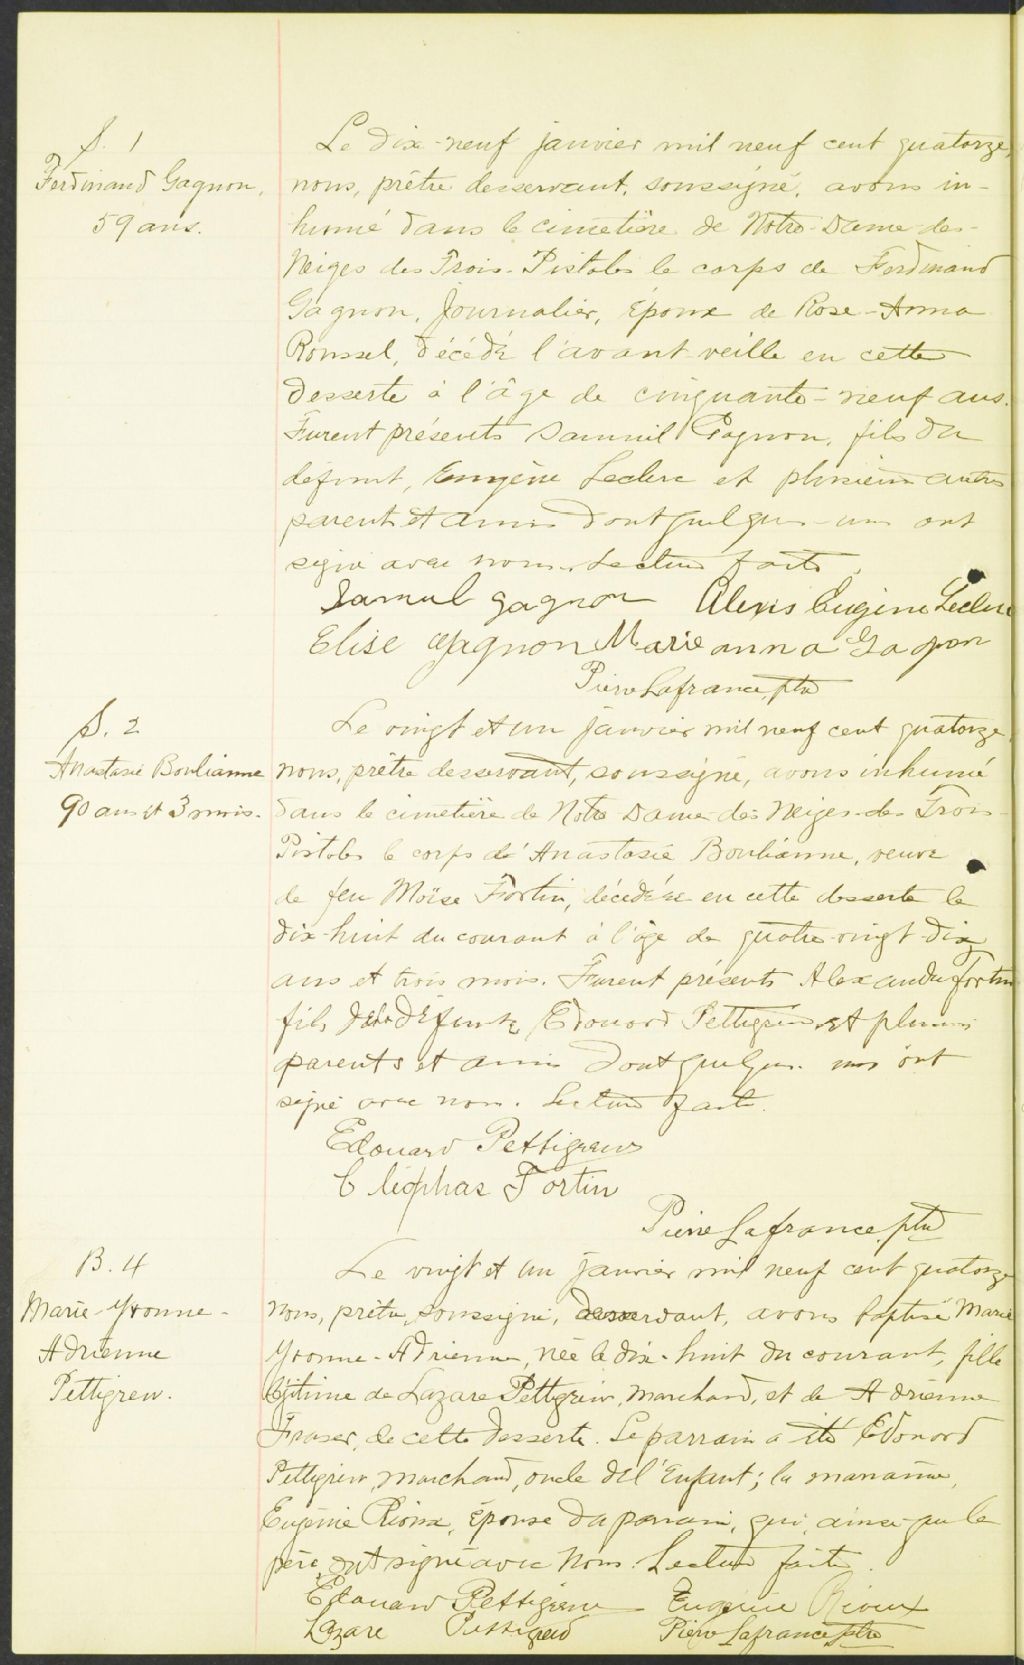 S. 1
Ferdinand Gagnon,
59 ans.
Le dix-neuf janvier mil neuf cent quatorze,
nous, prêtre desservant, soussigné, avons in-
humé dans le cimetière de Notre-Dame-des-
Neiges des Trois-Pistoles le corps de Ferdinand
Gagnon, Journalier, époux de Rose-Anna
Roussel, décédé l'avant-veille en cette
desserte à l'âge de cinquante-neuf ans.
Furent présents Samuil Gagnon, fils du
défunt, Eugène Leclerc et plusieurs autres
parents et amis dont quelques-uns ont
signé avec nous. Lecture faite.
Samuel Gagnon Alexis Eugène Leclerc
Elise Gagnon Marie anna Gagnon
Pierre Lafrance, ptre
S. 2
Anastasie Boulianne
90 ans et 3 mois.
Le vingt et un janvier mil neuf cent quatorze,
nous, prêtre desservant, soussigné, avons inhumé
dans le cimetière de Notre Dame-des-Neiges-des Trois-
Pistoles le corps de Anastasie Boulianne, veuve
de feu Moïse Fortin, décédée en cette desserte le
dix-huit du courant à l'âge de quatre-vingt-dix
ans et trois mois. Furent présents Alexandre Fortin
fils de la défunte, Edouard Pettigrew et plusieurs
parents et amis dont quelques-uns ont
signé avec nous. Lecture faite.
Edouard Pettigrew
Cléophas Fortin
Pierre Lafrance, ptre
B. 4
Marie-Yvonne-
Adrienne
Pettigrew.
Le vingt et un janvier mil neuf cent quatorze
nous, prêtre, soussigné, desservant, avons baptisé Marie
Yvonne-Adrienne, née le dix-huit du courant, fille
légitime de Lazare Pettigrew, marchand, et de Adrienne
Fraser, de cette desserte. Le parrain a été Edouard
Pettigrew, marchand, oncle de l'Enfant; la marraine,
Eugénie Rioux, épouse du parrain, qui, ainsi que le
père, ont signé avec nous. Lecture faite.
Edouard Pettigrew Eugénie Rioux
Lazare Pettigrew Pierre Lafrance ptre